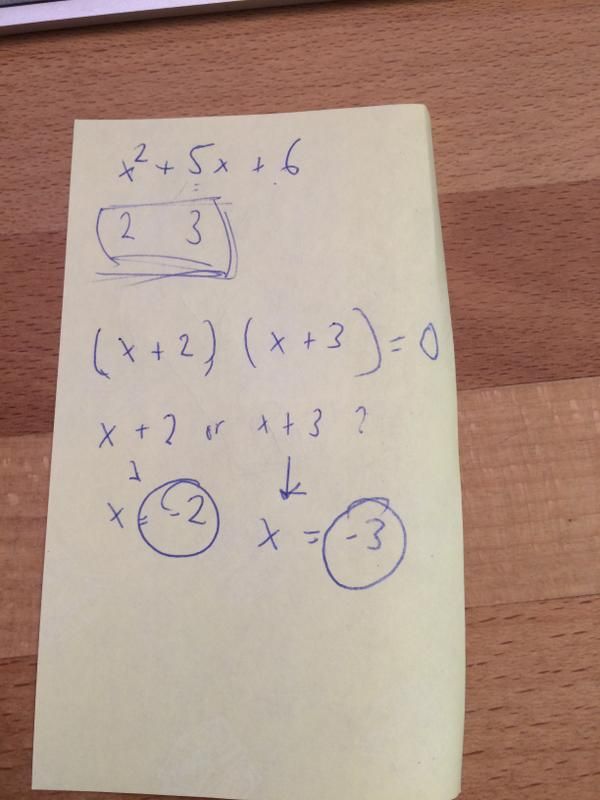 x² + 5x + 6
2 3
(x + 2) (x + 3) = 0
x + 2 or x + 3 ?
x = -2 x = -3